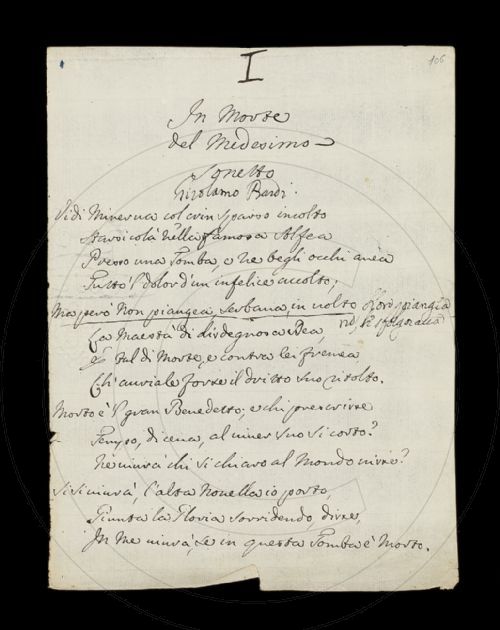 I
106
In Morte
del Medesimo
Sonetto
Girolamo Bardi.
Vidi Minerva col crin sparso incolto
Starsi colà nella famosa Alfea
Presso una Tomba, e ne begli occhi avea
Tutto 'l dolor d'un infelice accolto;
Ma però non piangea, serbava in volto
La Maestà di disdegnosa Dea,
Sul di Morte, e contra lei fremea
Ch' avea le forze il dritto suo ritolto.
Morto è 'l gran Benedetto, e chi prescrivere
Tempo, dicea, al viver suo sì corto?
Nè vivrà chi sì chiaro al Mondo vive?
Sì sì vivrà l'alta novella io porto,
Giunta la Gloria sorridendo, dive,
In me vivrà, se in questa Tomba è Morto.